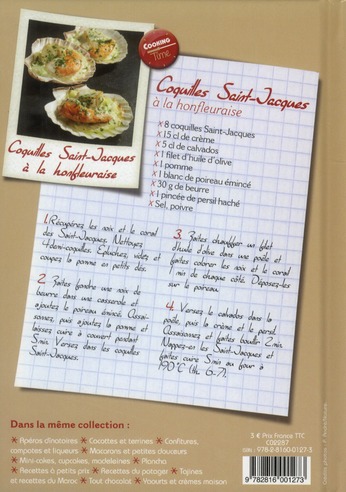 COOKING
Time
Coquilles Saint-Jacques
à la honfleuraise
Coquilles Saint-Jacques
à la honfleuraise
x 8 coquilles Saint-Jacques
x 15 cl de crème
x 5 cl de calvados
x 1 filet d'huile d'olive
x 1 pomme
x 1 blanc de poireau émincé
x 30 g de beurre
x 1 pincée de persil haché
x Sel, poivre
1. Récupérez les noix et le corail
des Saint-Jacques. Nettoyez
4 demi-coquilles. Epluchez, videz et
coupez la pomme en petits dés.
2. Faites fondre une noix de
beurre dans une casserole et
ajoutez le poireau émincé. Assai-
sonnez, puis ajoutez la pomme et
laissez cuire à couvert pendant
5 min. Versez dans les coquilles
Saint-Jacques.
3. Faites chauffer un filet
d'huile d'olive dans une poêle et
faites colorer les noix et le corail
1 min de chaque côté. Déposez-les
sur le poireau.
4. Versez le calvados dans la
poêle, puis la crème et le persil.
Assaisonnez et faites bouillir 2 min.
Nappez-en les Saint-Jacques et
faites cuire 5 min au four à
190°C (th. 6-7).
Dans la même collection :
* Apéros dînatoires * Cocottes et terrines * Confitures,
compotes et liqueurs * Macarons et petites douceurs
* Mini-cakes, cupcakes, madeleines * Plancha
* Recettes à petits prix * Recettes du potager * Tajines
et recettes du Maroc * Tout chocolat * Yaourts et crèmes maison
3 € Prix France TTC
C02287
ISBN : 978-2-8160-0127-3
9 782816 001273